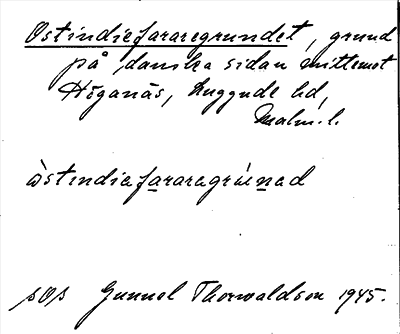 Ostindiefararegrundet, grund
på danska sidan mittemot
Höganäs, Luggude hd,
Malm. l.
òstindiefararegrúnad
sOs Gunnel Thorwaldson 1945.